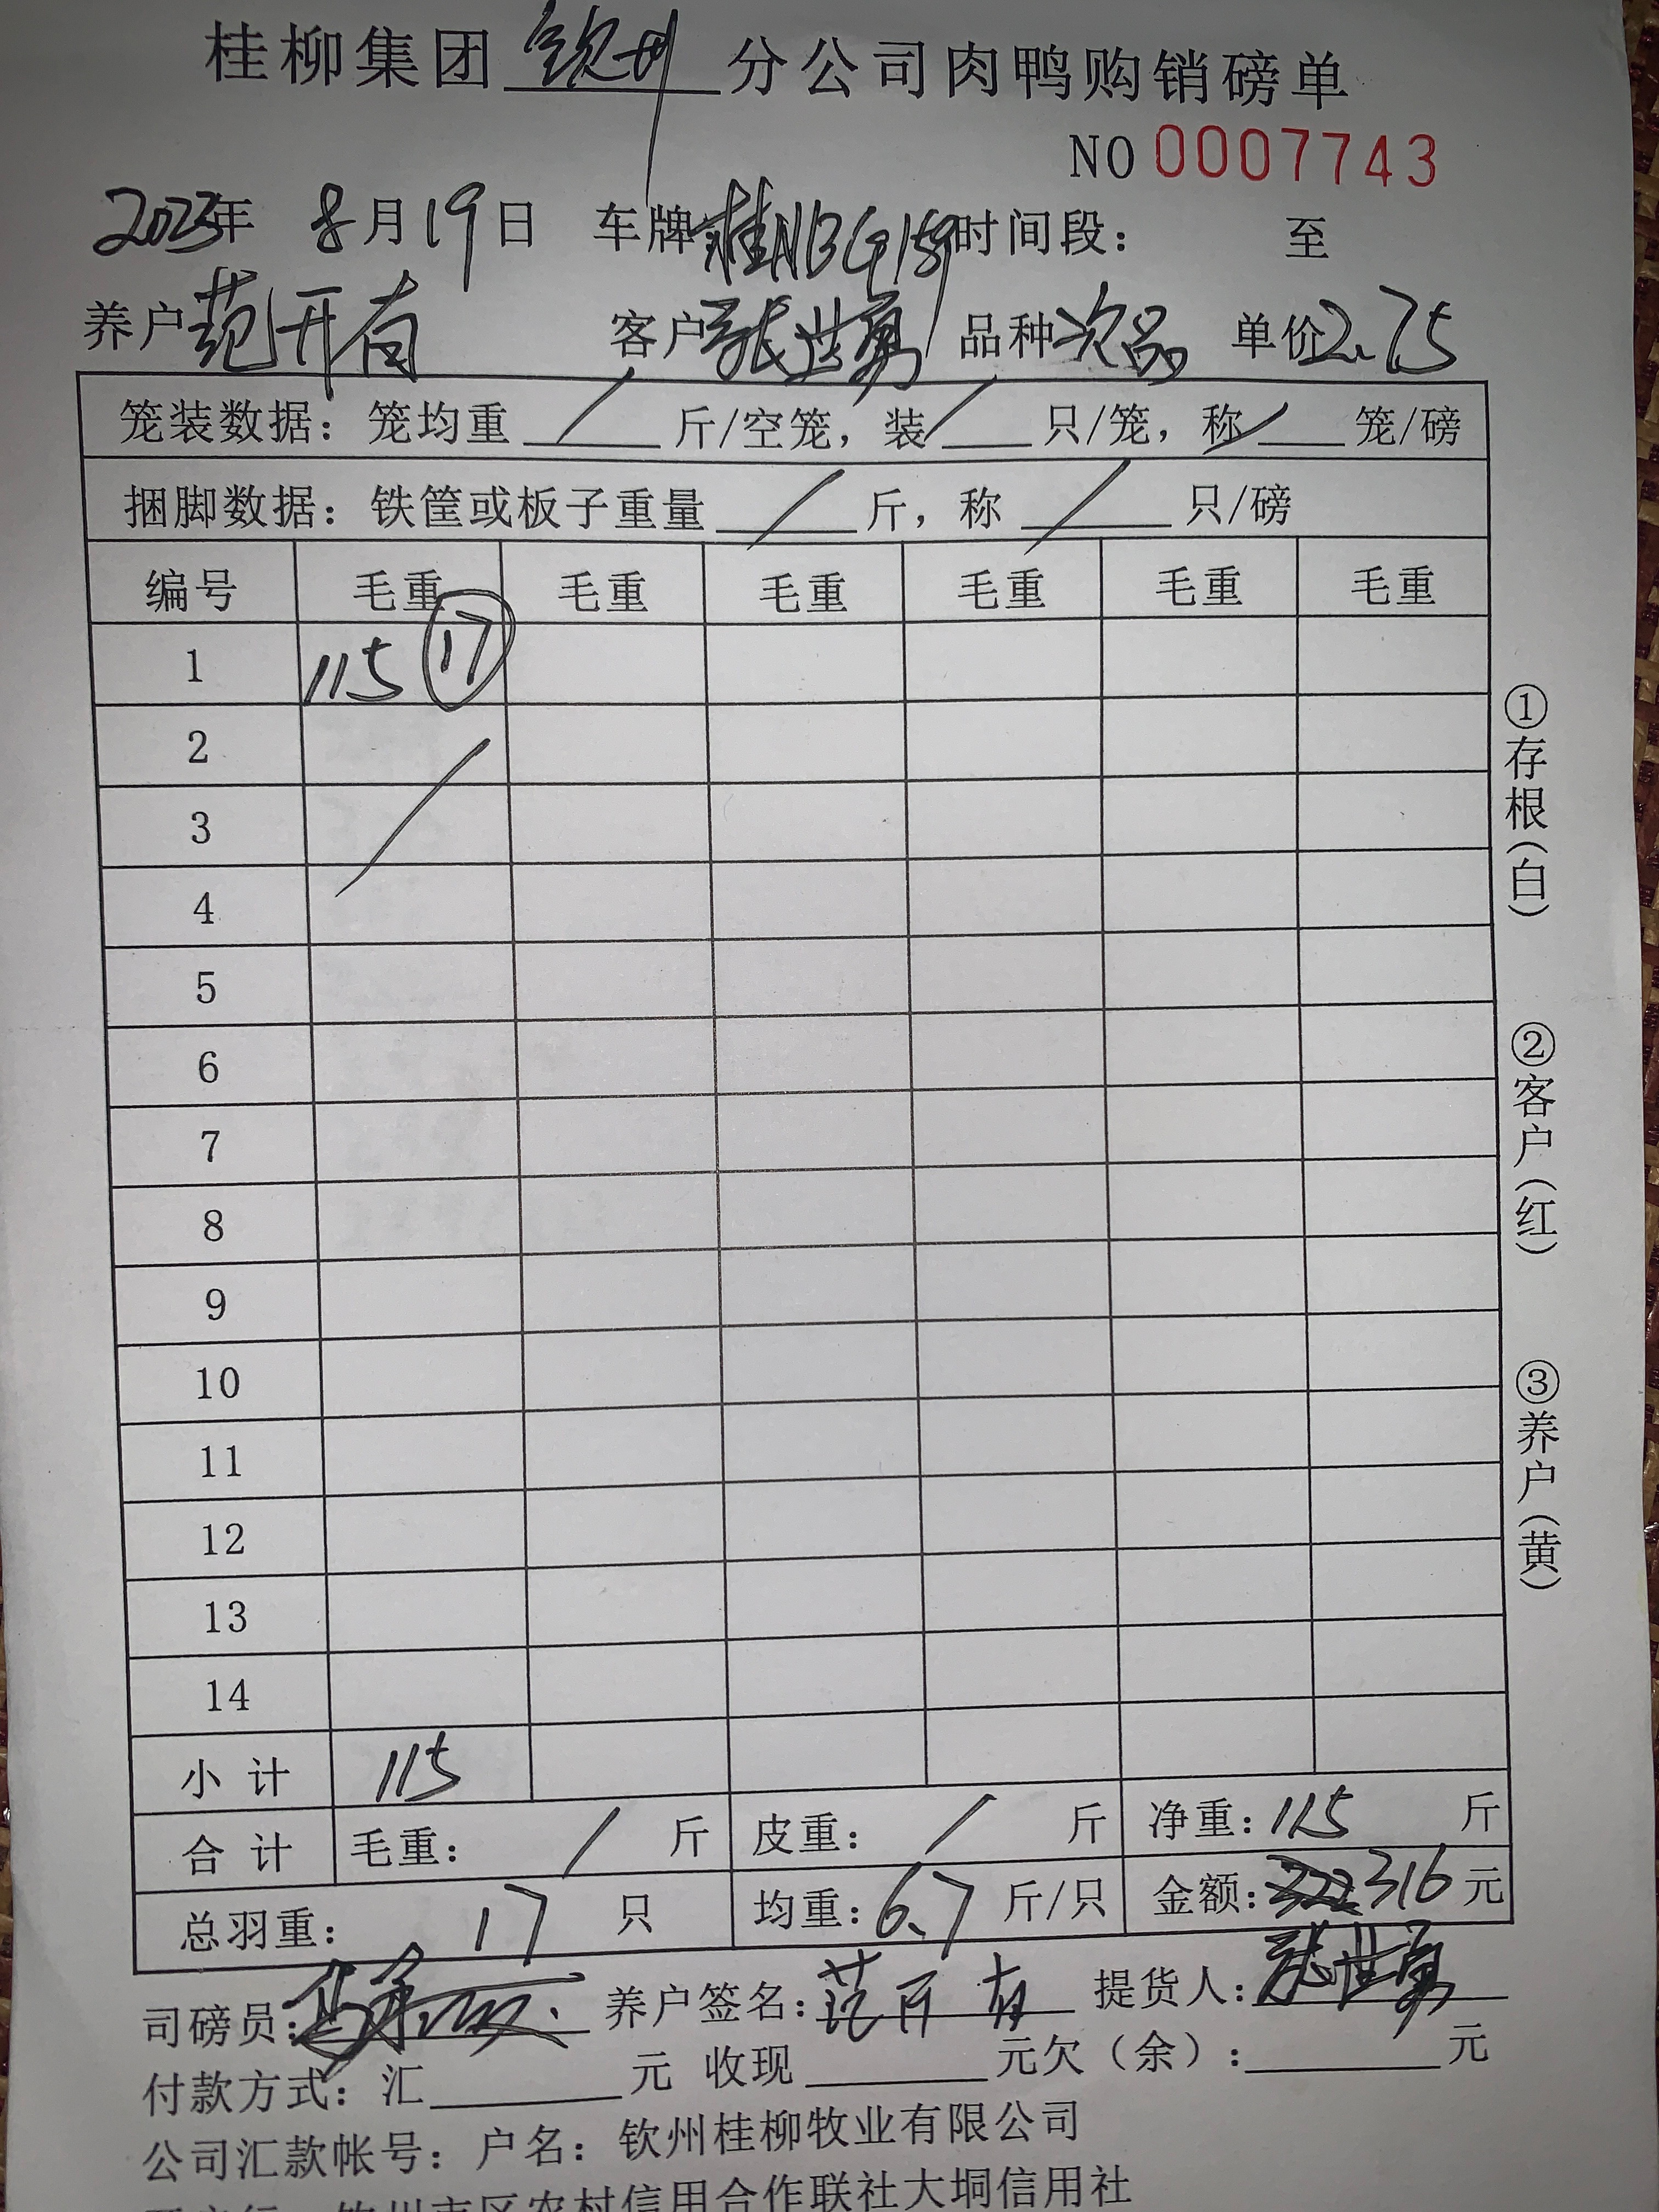 桂柳集团 钦州 分公司肉鸭购销磅单
NO 0007743
2023年 8月19日 车牌 桂NBG159 时间段： 至
养户 范开有 客户 张世勇 品种 次品 单价 2.75
笼装数据：笼均重 / 斤/空笼，装 / 只/笼，称 / 笼/磅
捆脚数据：铁筐或板子重量 / 斤，称 / 只/磅
编号 毛重 毛重 毛重 毛重 毛重 毛重
1 115 17
2
3
4
5
6
7
8
9
10
11
12
13
14
小计 115
合计 毛重： / 斤 皮重： / 斤 净重：115 斤
总羽重： 17 只 均重：6.7 斤/只 金额：316 元
司磅员： 养户签名：范开有 提货人：张世勇
付款方式：汇 元 收现 元欠（余）： 元
公司汇款帐号：户名：钦州桂柳牧业有限公司
钦州市区农村信用合作联社大垌信用社
①存根（白）
②客户（红）
③养户（黄）